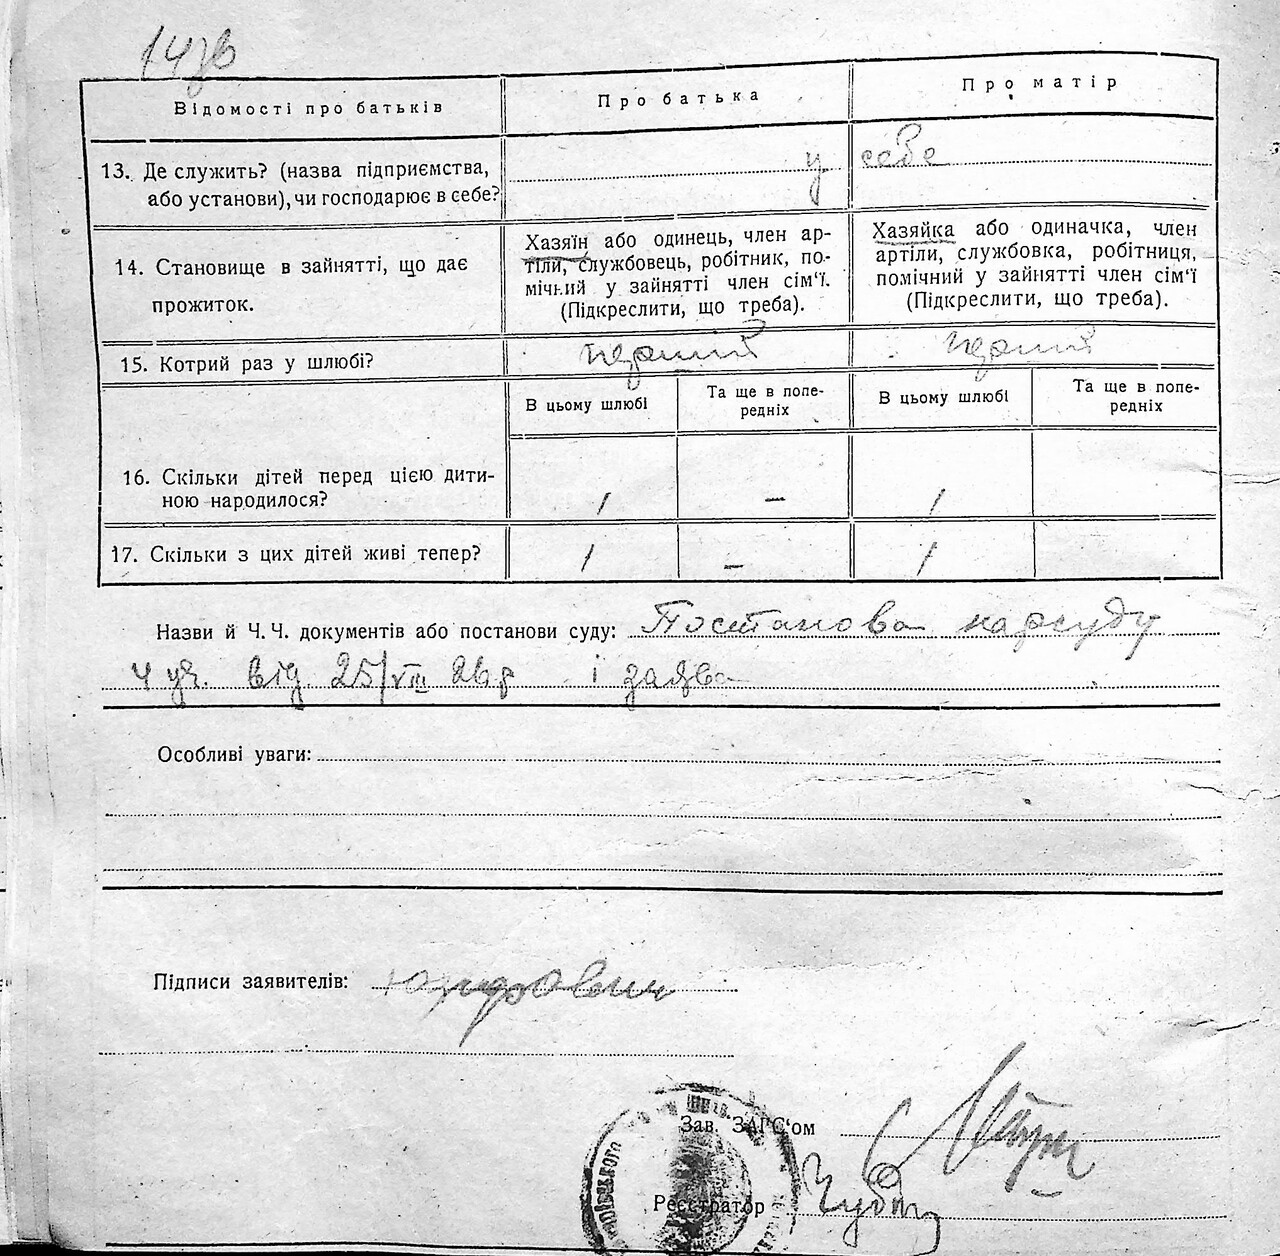 147зв
Відомості про батьків
Про батька
Про матір
13. Де служить? (назва підприємства,
або установи), чи господарює в себе?
у себе
14. Становище в зайнятті, що дає
прожиток.
Хазяїн або одинець, член ар-
тіли, службовець, робітник, по-
мічний у зайнятті член сім'ї.
(Підкреслити, що треба).
Хазяйка або одиначка, член
артіли, службовка, робітниця,
помічний у зайнятті член сім'ї
(Підкреслити, що треба).
15. Котрий раз у шлюбі?
перший
перший
В цьому шлюбі
Та ще в попе-
редніх
В цьому шлюбі
Та ще в попе-
редніх
16. Скільки дітей перед цією дити-
ною народилося?
1 – 1
17. Скільки з цих дітей живі тепер?
1 – 1
Назви й Ч. Ч. документів або постанови суду: Постанова нарсуду
4 уч. від 25/VIII 26 р і заява
Особливі уваги:
Підписи заявителів:
Зав. ЗАГС'ом
Реєстратор